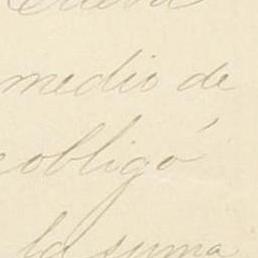 medio de
obligó
la suma